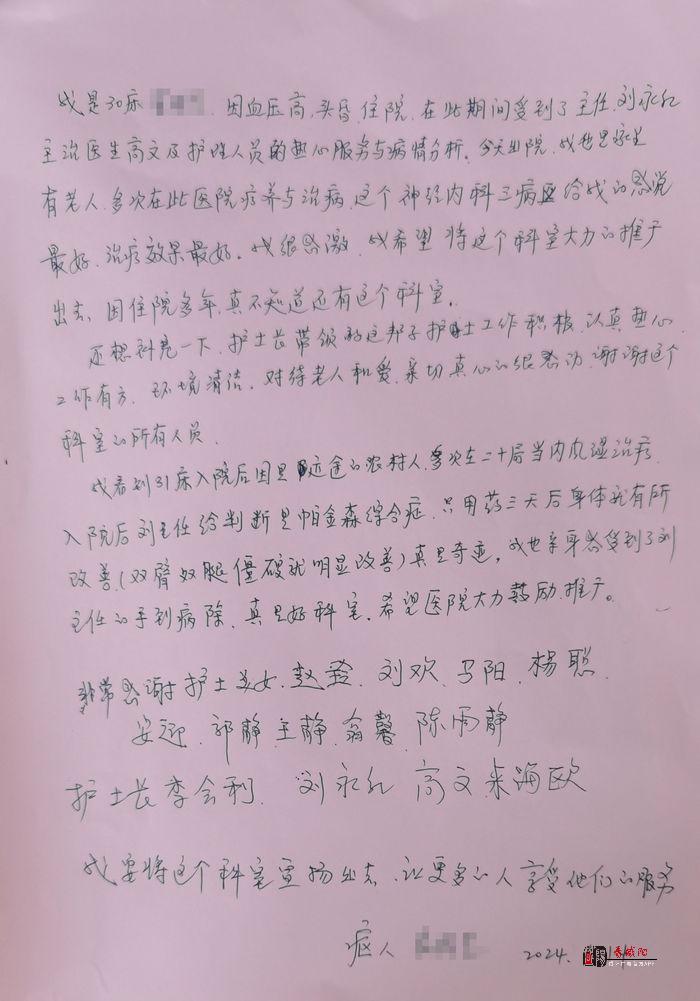 我是30床 因血压高，头昏住院。在此期间受到了主任刘永红
主治医生高文及护理人员的热心服务与病情分析。今天出院，我也是家里
有老人，多次在此医院疗养与治病，这个神经内科三病区给我的感觉
最好、治疗效果最好。我很感激，我希望将这个科室大力的推广
出去，因住院多年，真不知道还有这个科室。
还想补充一下，护士长带领的这帮子护士工作积极，认真热心
工作有方，环境清洁。对待老人和爱、亲切真心的很感动，谢谢这个
科室的所有人员。
我看到31床入院后因是 的农村人，多次在二十局当内风湿治疗
入院后刘主任给判断是帕金森综合症，只用药三天后身体就有所
改善，(双臂 腿僵硬就明显改善)真是奇迹，我也亲身感受到了刘
主任的手到病除，真是好科室。希望医院大力鼓励、推广。
非常感谢护士美女、赵 、刘欢、马阳、杨聪、
安迎、郭静、王静、翁馨、陈雨静
护士长李会利、刘永红 高文 海欧
我要将这个科室宣扬出去，让更多的人享受他们的服务
病人
2024.
看咸阳